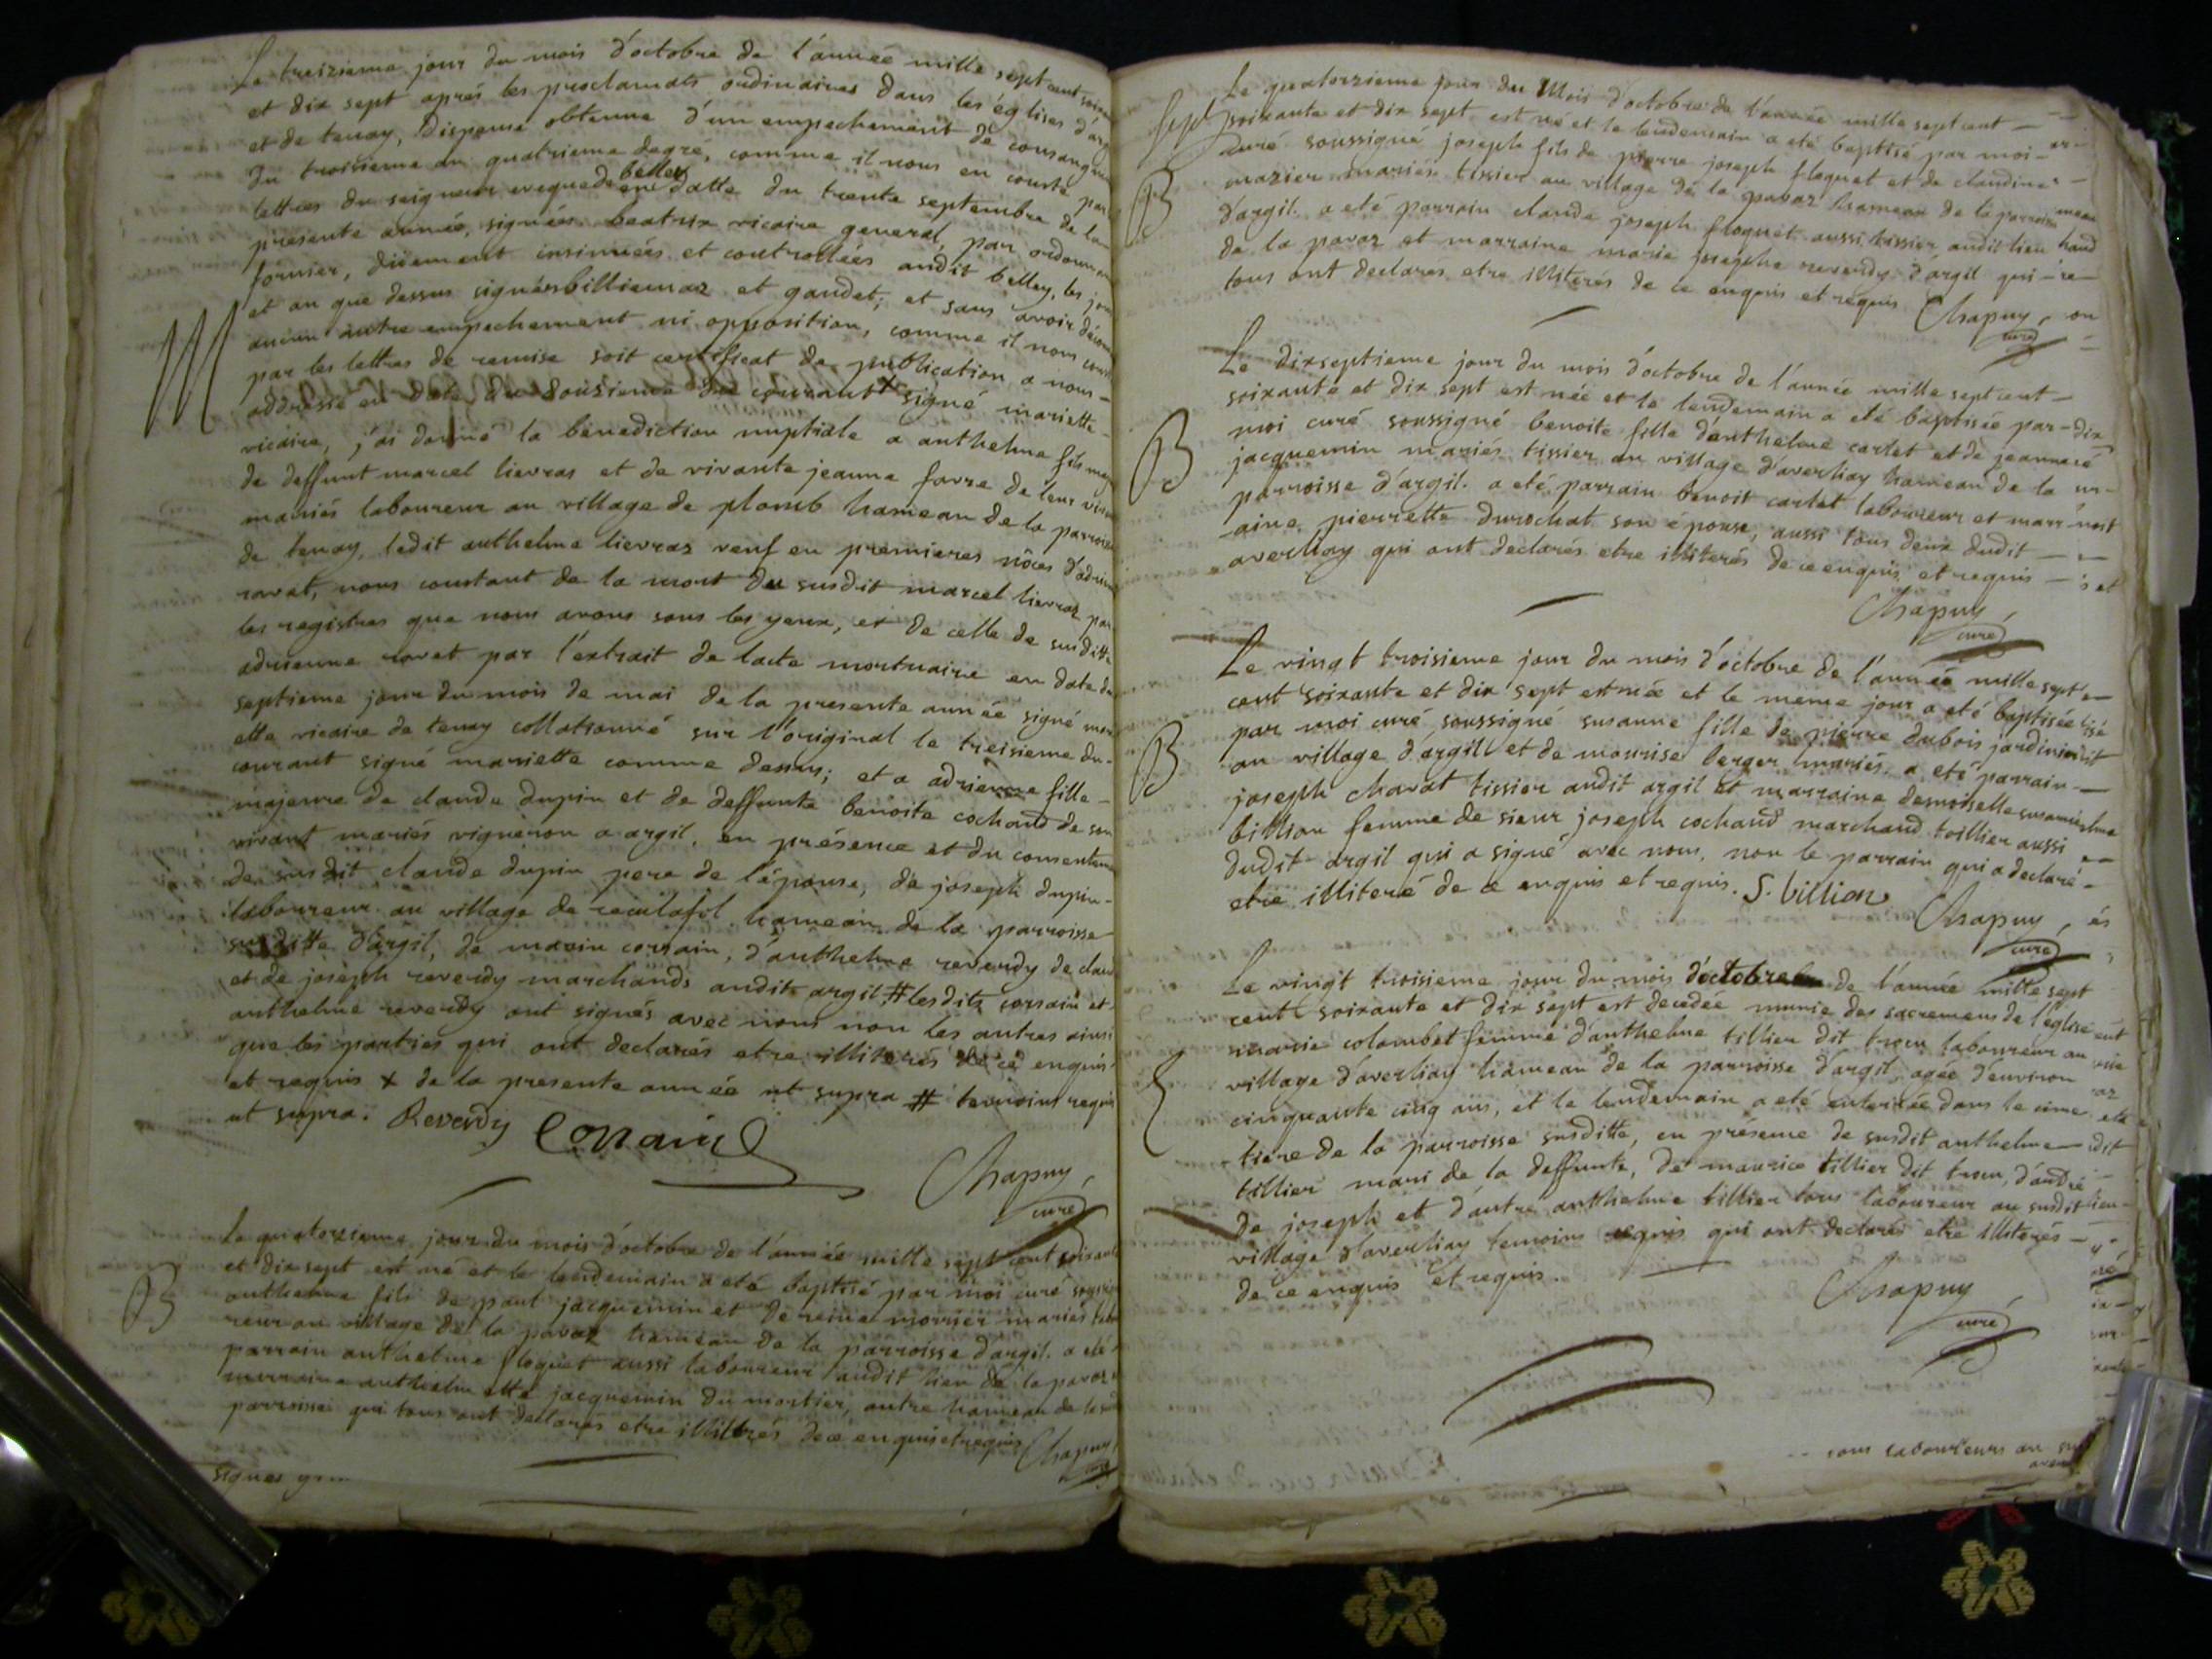 Le treizieme jour du mois d'octobre de l'année mille sept cent soix
et dix sept aprés les proclamats ordinaires dans les églises d'arg
et de tenay, Dispense obtenue d'un empechement de consangui
du troisieme au quatrieme degré, comme il nous en conste par
lettres du seigneur eveque de belley en datte du trente septembre de la
presente année, signées beatrix vicaire general, par ordonnan
fornier, düement insinuées et controllées audit belley, les jour
et an que dessus signés billiemaz et gaudet; et sans avoir décou
aucun autre empechement ni opposition, comme il nous conste
par les lettres de remise soit certificat de publication a nous -
addressé en date du douzieme du courant + signé mariette -
vicaire, j'ai donné la bénediction nuptiale a anthelme fils maj
de deffunt marcel lievraz et de vivante jeanne favre de leur viva
mariés laboureur au village de plomb hameau de la parroisse
de tenay, ledit anthelme lievraz veuf en premieres nôces d'adrien
ravat, nous constant de la mort du susdit marcel lievraz par
les registres que nous avons sous les yeux, et de celle de susditte
adrienne ravet par l'extrait de lacte mortuaire en date du
septieme jour du mois de mai de la presente année signé mari
ette vicaire de tenay collationné sur l'original le treisieme du-
courant signé mariette comme dessus; et a adrienne fille -
majeure de claude dupin et de deffunte benoite cochaud de son
vivant mariés vigneron a argil, en présence et du consenteme
de susdit claude dupin pere de l'épouse, de joseph dupin-
laboureur au village de reculafol hameau de la parroisse
susditte d'argil, de marin corsain, d'anthelme reverdy de clau
et de joseph reverdy marchands audit argil # lesdits corsain et
anthelme reverdy ont signés avec nous non les autres ainsi
que les parties qui ont declarés etre illiterés de ce enquis
et requis + de la presente année ut supra # temoins requis
ut supra. Reverdy Corsain
Chapuy,
curé
B
Le quatorzieme jour du mois d'octobre de l'année mille sept cent soixante
et dix sept est né et le lendemain a eté baptisé par moi curé soussig
anthelme fils de paul jacquemin et de reine mornier mariés labou
reur au village de la pavaz hameau de la parroisse d'argil. a eté
parrain anthelme floquet aussi laboureur audit lieu de la pavaz
marraine anthelmette jacquemin du mortier, autre hameau de la
parroisse qui tous ont declarés etre illiterés de ce enquis et requis Chapuy
curé
signés
Le quatorzieme jour du Mois d'octobre de l'année mille sept cent -
soixante et dix sept est né et le lendemain a eté baptisé par moi -
curé soussigné joseph fils de pierre joseph floquet et de claudine -
mazier mariés tissier au village de la pavaz hameau de la parroisse
B
d'argil. a eté parrain claude joseph floquet aussi tissier audit lieu
de la pavaz et marraine marie josephe reverdy d'argil qui -
tous ont declarés etre illiterés de ce enquis et requis Chapuy,
curé
Le dixseptieme jour du mois d'octobre de l'année mille sept cent -
soixante et dix sept est née et le lendemain a eté baptisée par -
moi curé soussigné benoite fille d'anthelme carlet et de jeanne
B
jacquemin mariés tissier au village d'averliay hameau de la
parroisse d'argil. a eté parrain benoit carlet laboureur et marr
aine pierrette durochat son épouse, aussi tous deux dudit -
averliay qui ont declarés etre illiterés de ce enquis et requis -
Chapuy,
curé
Le vingt troisieme jour du mois d'octobre de l'année mille sept -
cent soixante et dix sept est née et le meme jour a eté baptisée
par moi curé soussigné susanne fille de pierre dubois jardinier
B
au village d'argil et de maurise berger mariés, a eté parrain -
joseph charat tissier audit argil et marraine demoiselle susanne
billion femme de sieur joseph cochaud marchand toillier aussi
dudit argil qui a signé avec nous, non le parrain qui a declaré -
etre illiteré de ce enquis et requis. S. billion
Chapuy,
curé
Le vingt troisieme jour du mois d'octobre de l'année mille sept
cent soixante et dix sept est decedée munie des sacremens de l'église
marie colombet femme d'anthelme tillier dit trou laboureur au
village d'averliay hameau de la parroisse d'argil, agée d'environ
cinquante cinq ans, et le lendemain a eté enterrée dans le cime
tiere de la parroisse susditte, en présence de susdit anthelme -
tillier mari de la deffunte, de maurice tillier dit trou, d'andré
de joseph et d'autre anthelme tillier tous laboureur au susdit
village d'averliay temoins requis qui ont declarés etre illiterés -
de ce enquis et requis.
Chapuy,
curé
tous laboureurs au